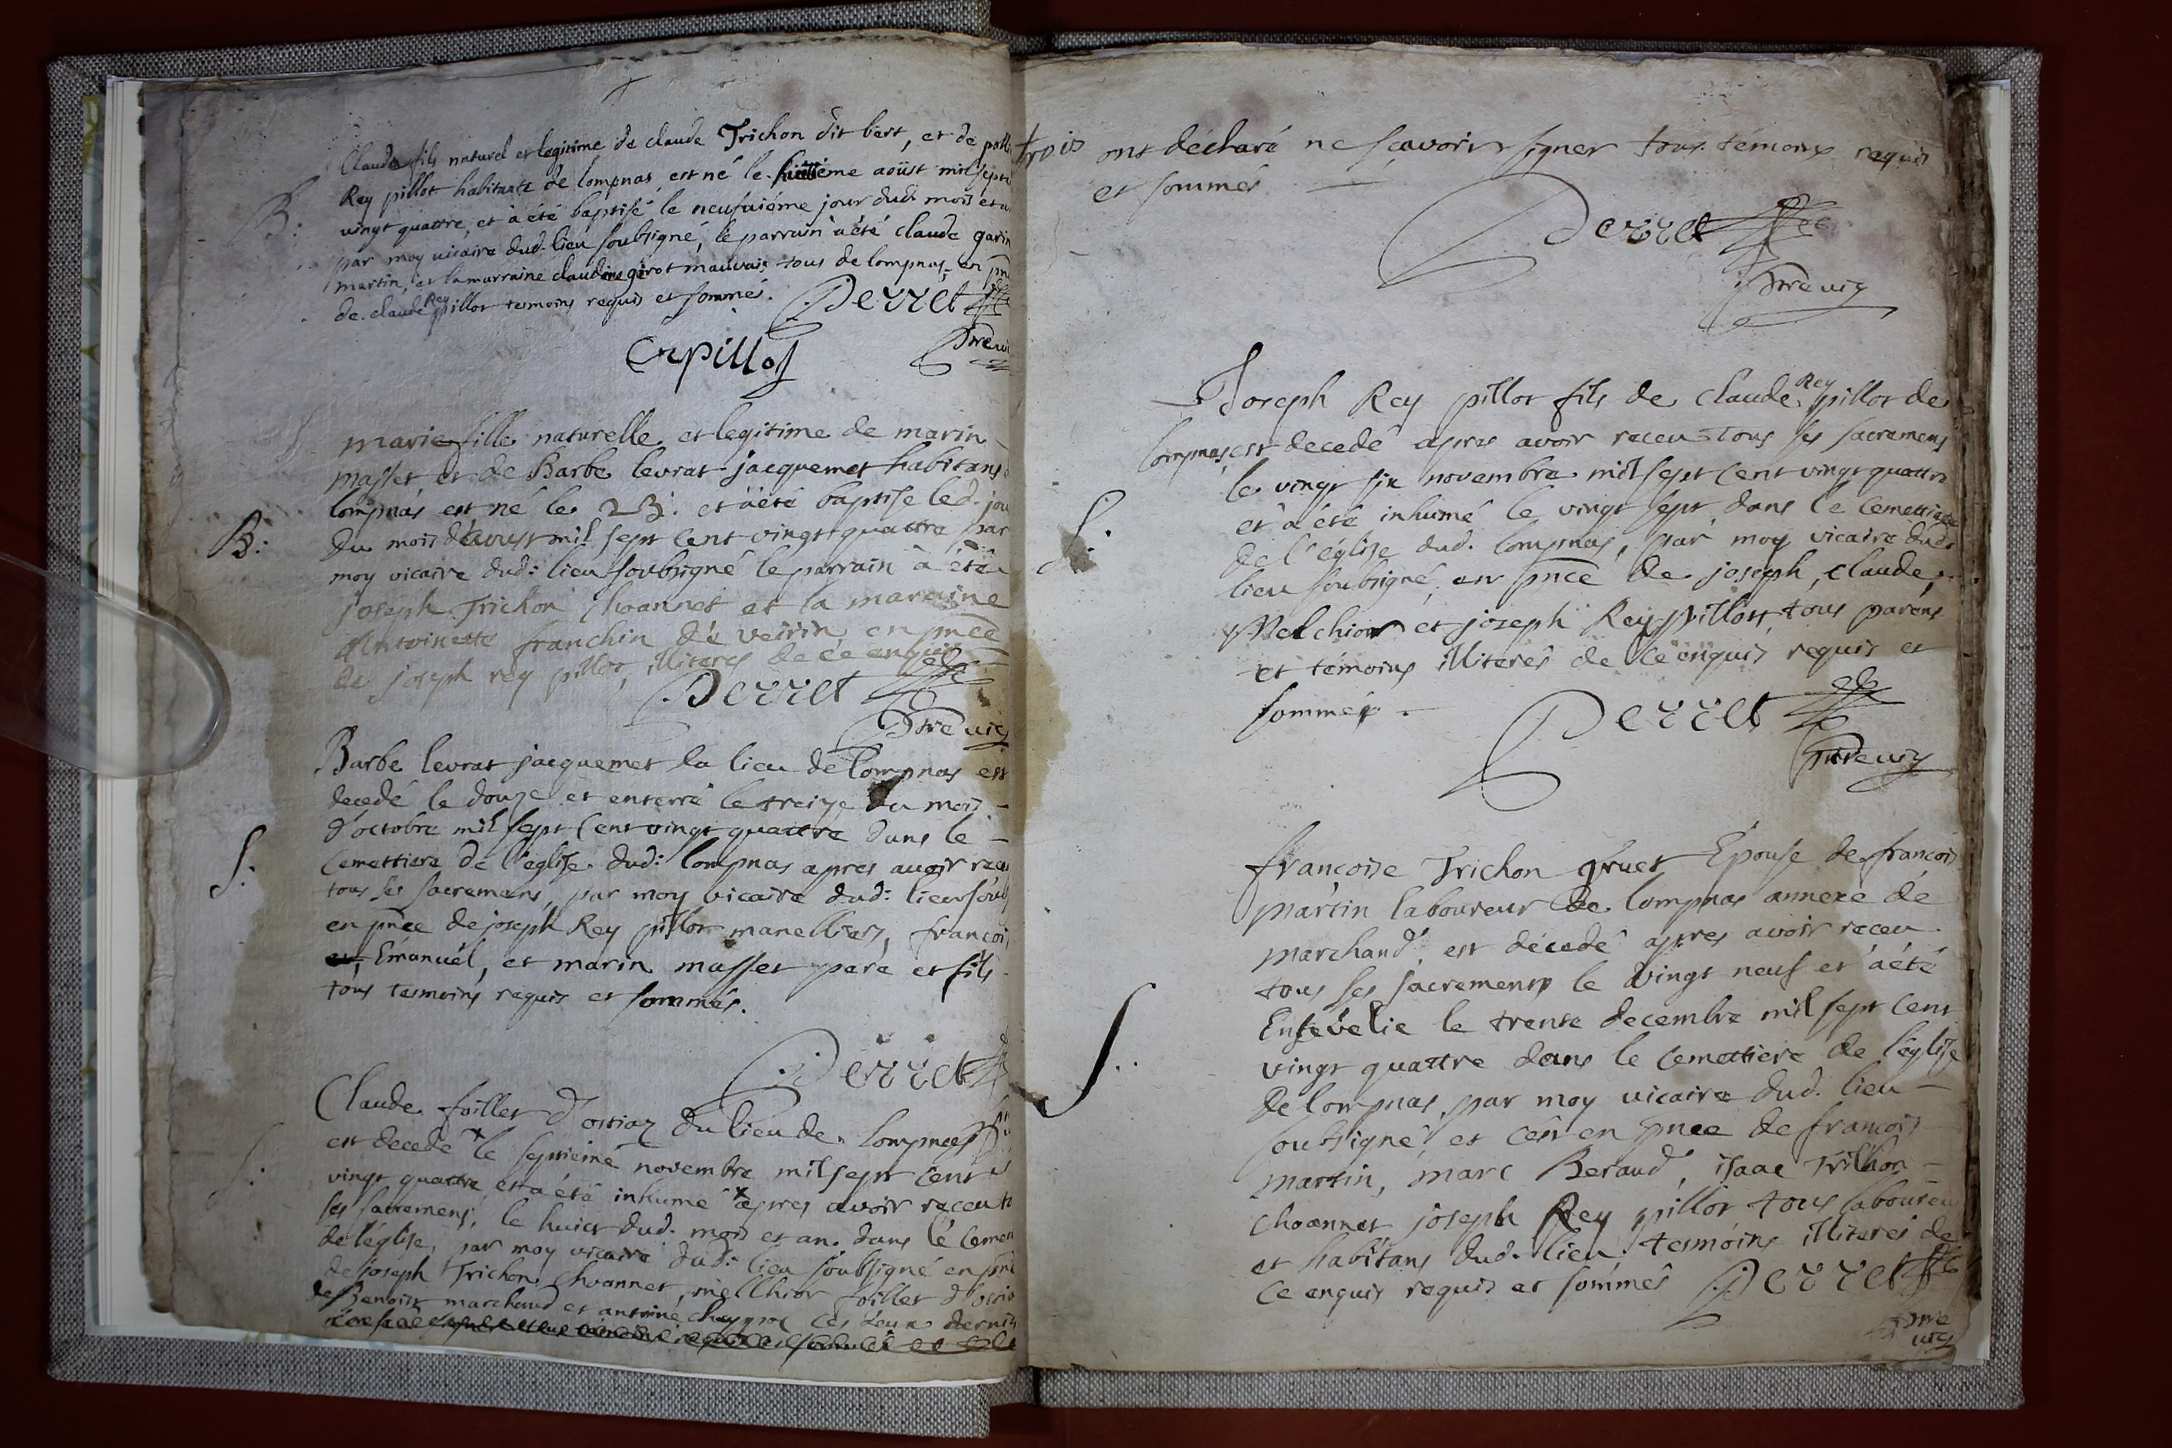 Claude fils naturel et legitime de claude Trichon dit bert, et de
Rey pillot habitants de lompnas est né le huitième aoüst mil sept
B: vingt quattre, et à été baptisé le neufuième jour dud: mois et
par moy vicaire dud: lieu soubsigné, le parrain à été claude garin
martin, et la marraine claudine girot mauvais tous de lompnas, en pnce
de claude Rey pillot temoins requis et sommés. Perret
crpillot
ptre vic
marie fille naturelle et legitime de marin
masset et de Barbe levrat jacquemet habitans
lompnas est né le 23: et à été baptise led. jour
B: du mois d'aoust mil sept cent vingt quattre par
moy vicaire dud: lieu soubsigné le parrain à été
joseph Trichon Choannet et la maraine
Antoinette franchin de veirin en pnce
de joseph rey pillot, illiterés de ce enquis
Perret
ptre vic
Barbe levrat jacquemet la lieu de lompnas est
decedé le douze et enterré le treize du mois
d'octobre mil sept cent vingt quattre dans le
S: cemettiere de l'eglise dud: lompnas apres auoir receu
tous ses sacremens, par moy vicaire dud: lieu soubs
en pnce de joseph Rey pillot francois
et, Emanuël, et marin masset pere et fils
tous tesmoins requis et sommés.
Perret
Claude foillet d'ostiaz du lieu de lompnas
est decedé x le septieme novembre mil sept cent
S: vingt quattre, et à été inhumé x apres avoir receu
ses sacremens, le huict dud. mois et an. dans le cemet
de l'église, par moy vicaire dud: lieu soubsigné en pnce
de joseph Trichon Choannet, mellhior foillet d'ostia
de Benoist marchand et antoine ces deux derniers
trois ont déclaré ne sçavoir signer tous témoins requis
et sommés
Perret
ptre vic
Joseph Rey pillot fils de claude Rey pillot de
lompnas, est decedé apres avoir receu tous ses sacremens
le vingt six novembre mil sept cent vingt quattre
S: et à été inhumé le vingt sept dans le cemettiere
de l'église dud. lompnas, par moy vicaire dud:
lieu soubsigné, en pnce de joseph, claude,
Melchior et joseph Rey pillot, tous parens
et témoins illiterés de ce enquis requis et
sommés
Perret
ptre vic
françoise Trichon gruet Epouse de françois
martin laboureur de lompnas annexe de
marchand, est décedé apres avoir receu
tous ses sacrements le vingt neuf et à été
Ensevelie le trente decembre mil sept cent
S: vingt quattre dans le cemettiere de l'église
de lompnas, par moy vicaire dud. lieu
soubsigné, et ce en pnce de françois
martin, marc Beraud, isaac Trichon
choannet joseph Rey pillot tous laboureurs
et habitans dud. lieu, tesmoins illiterés de
ce enquis requis et sommés Perret
ptre
vic